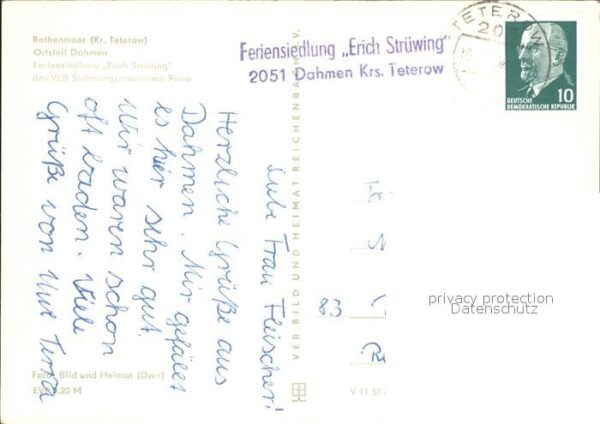 Rothenmoor (Kr. Teterow)
Ortsteil Dahmen
Feriensiedlung „Erich Strüwing"
des VEB Strömungsmaschinen Pirna
Feriensiedlung „Erich Strüwing"
2051 Dahmen Krs. Teterow
TETEROW
DEUTSCHE
DEMOKRATISCHE REPUBLIK
10
Liebe Frau Fleischer!
Herzliche Grüße aus
Dahmen. Mir gefällt
es hier sehr gut.
Wir waren schon
oft baden. Viele
Grüße von
VEB BILD UND HEIMAT REICHENBACH I. V.
83
privacy protection
Datenschutz
Foto: Bild und Heimat (Darr)
EVP 0,20 M
V 11 50